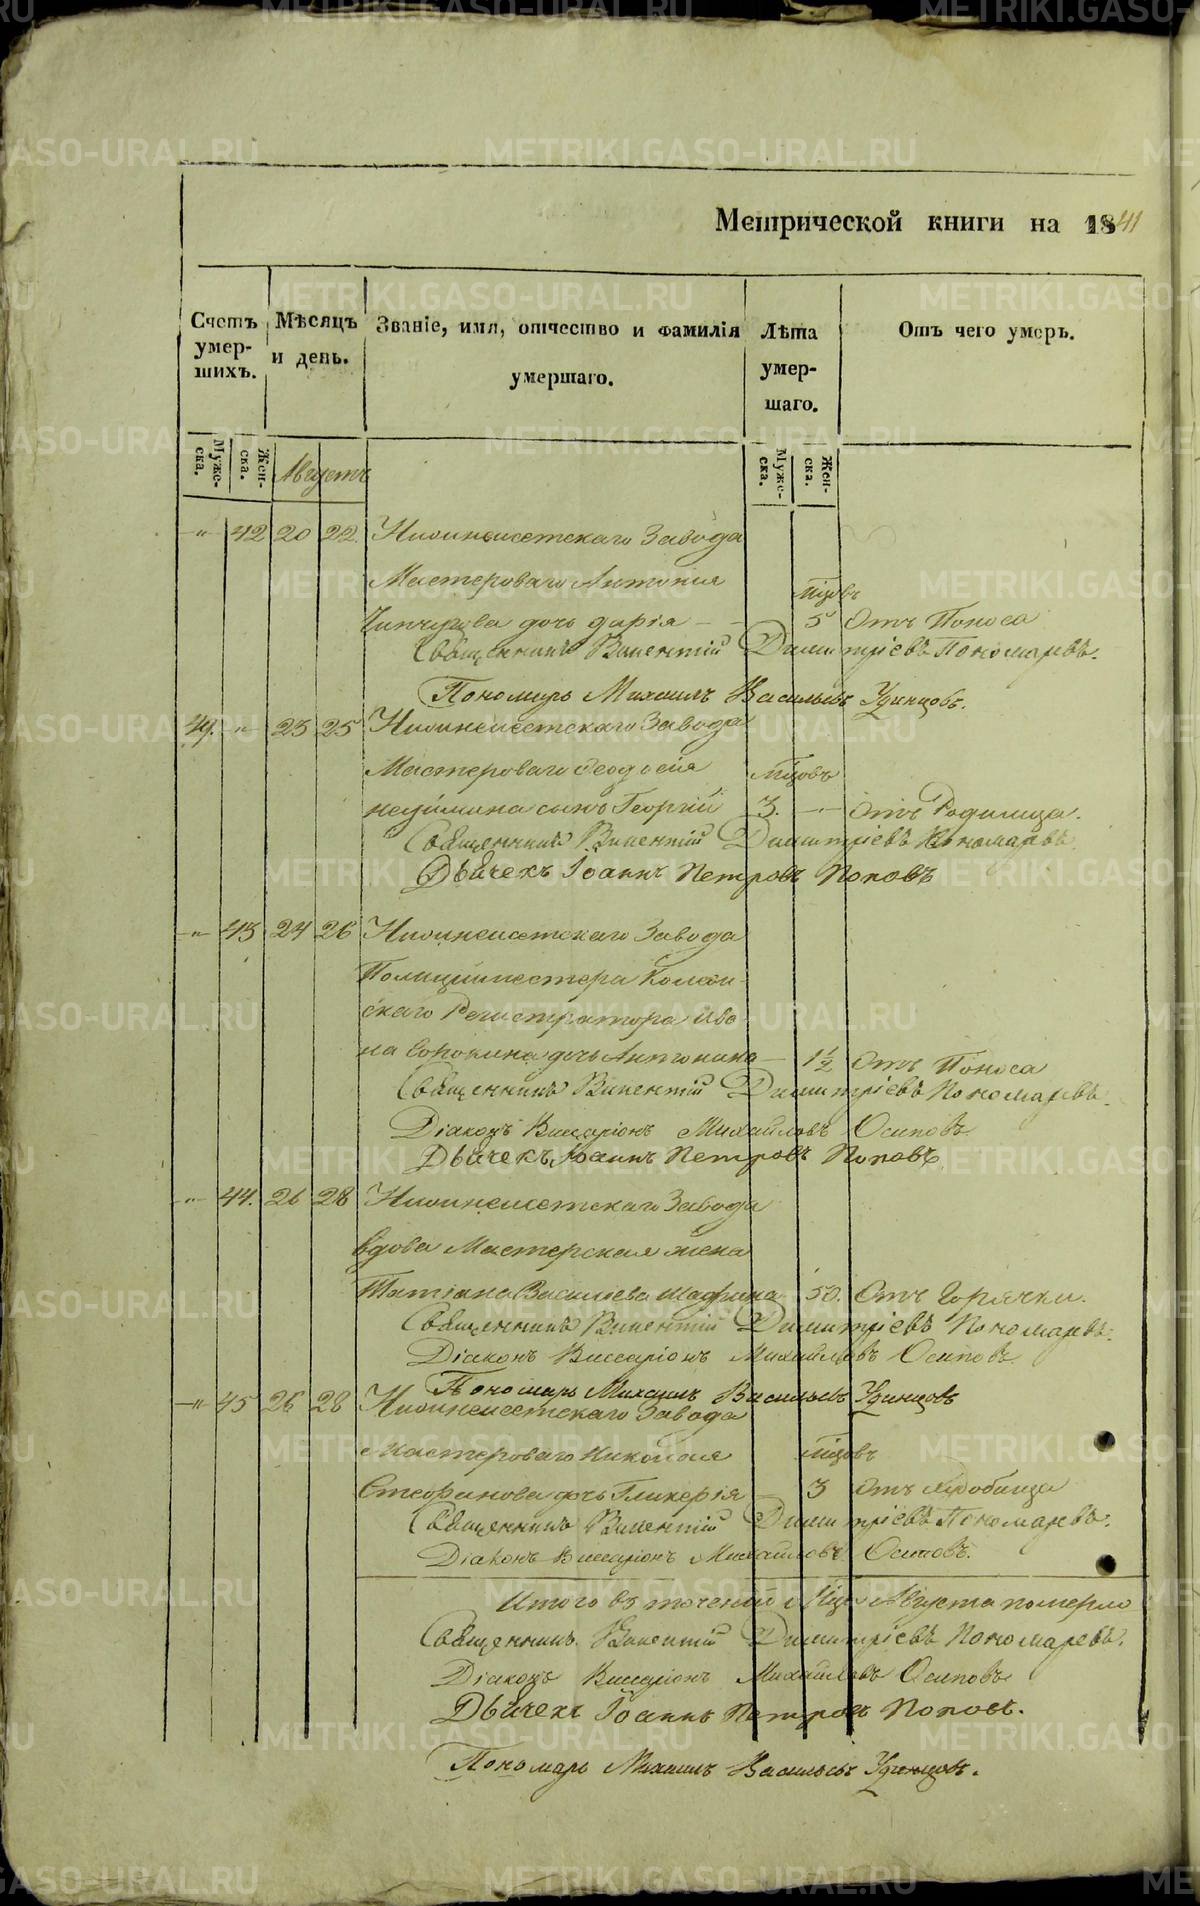 METRIKI.GASO-URAL.RU
Метрической книги на 1841
Счетъ умер- шихъ.
Мѣсяцъ и день.
Званіе, имя, отчество и фамилія умершаго.
Лѣта умер- шаго.
Отъ чего умеръ.
Муже- ска.
Жен- ска.
Августъ
Муже- ска.
Жен- ска.
" 42 20 22 Нижнеисетскаго Завода
Мастероваго Антонія мѣцовъ
дочь Дарія — 5 Отъ Поноса
Священникъ Викентій Димитріевъ Пономаревъ.
Пономарь Михаилъ Васильевъ Удинцовъ.
49. " 23 25 Нижнеисетскаго Завода
Мастероваго Ѳеодосія мѣцовъ
сынъ Георгій 3. — Отъ Родимца.
Священникъ Викентій Димитріевъ Пономаревъ
Дьячекъ Іоаннъ Петровъ Поповъ
" 43 24 26 Нижнеисетскаго Завода
Полицмейстера Коллежи-
скаго Регистратора Ива-
на Сорокина дочь Антонина — 1½ Отъ Поноса
Священникъ Викентій Димитріевъ Пономаревъ.
Діаконъ Виссаріонъ Михайловъ Осиповъ
Дьячекъ Іоаннъ Петровъ Поповъ
" 44. 26 28 Нижнеисетскаго Завода
вдова Мастерская жена
Татіана Василіева 50. Отъ Горячки.
Священникъ Викентій Димитріевъ Пономаревъ.
Діаконъ Виссаріонъ Михайловъ Осиповъ
Пономарь Михаилъ Васильевъ Удинцовъ
" 45 26 28 Нижнеисетскаго Завода
Мастероваго Николая мѣцовъ
Стефанова дочь Гликерія — 3 Отъ
Священникъ Викентій Димитріевъ Пономаревъ.
Діаконъ Виссаріонъ Михайловъ Осиповъ.
Итого въ теченіи Мѣца Августа померло
Священникъ Викентій Димитріевъ Пономаревъ.
Діаконъ Виссаріонъ Михайловъ Осиповъ
Дьячекъ Іоаннъ Петровъ Поповъ.
Пономарь Михаилъ Васильевъ Удинцовъ.